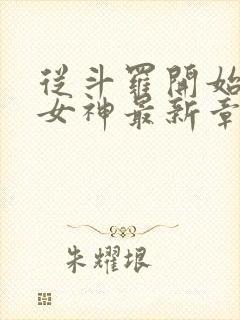 從斗羅開始
女神最新章
朱耀垠